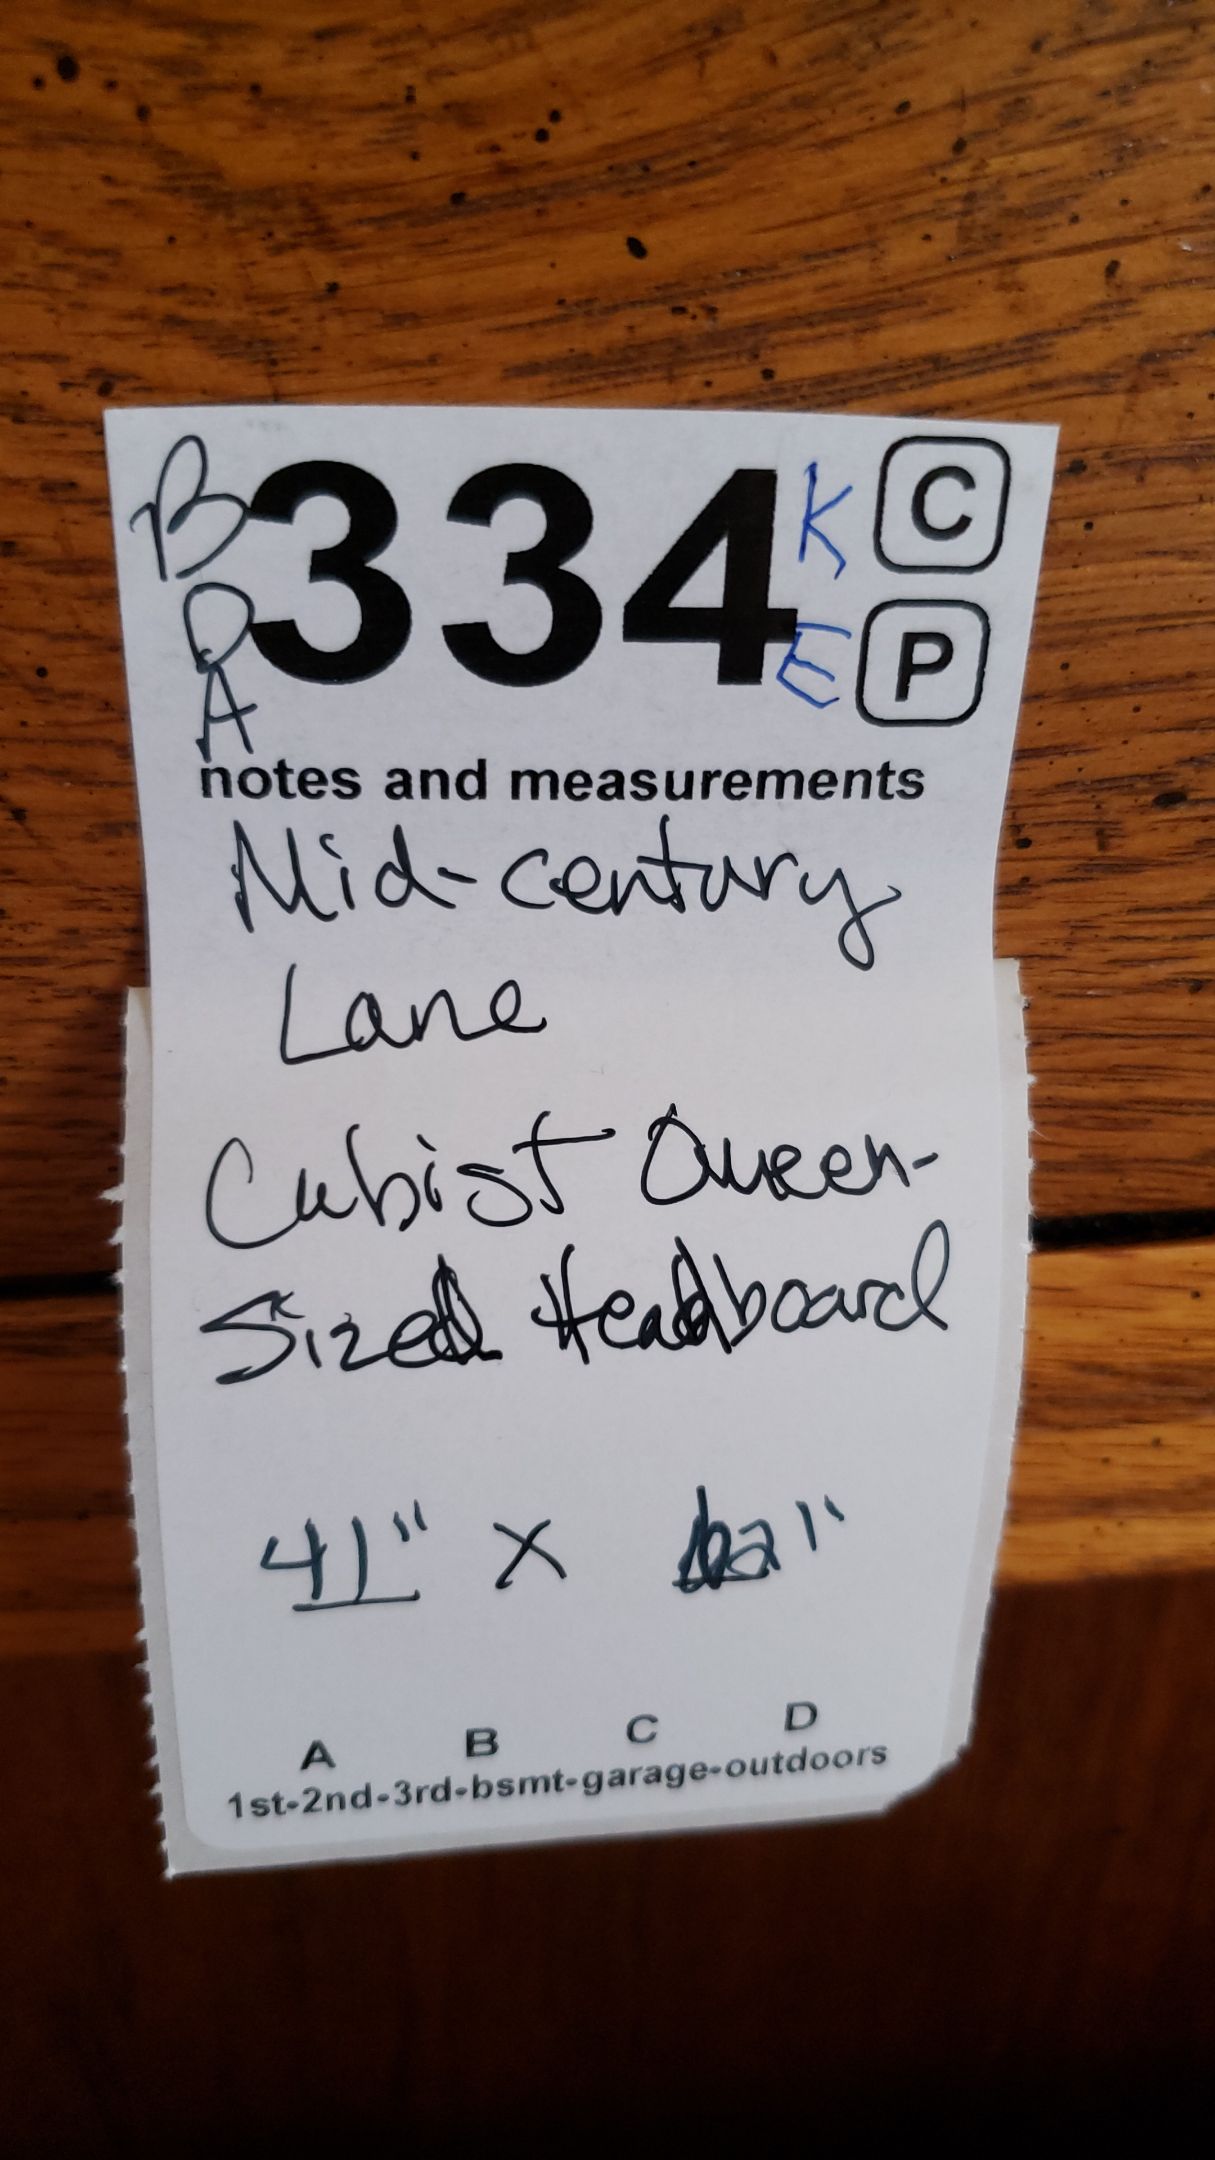 B 334 K C
P E P
A
notes and measurements
Mid-century
Lane
Cubist Queen-
Sized Headboard
41" x
A B C D
1st-2nd-3rd-bsmt-garage-outdoors